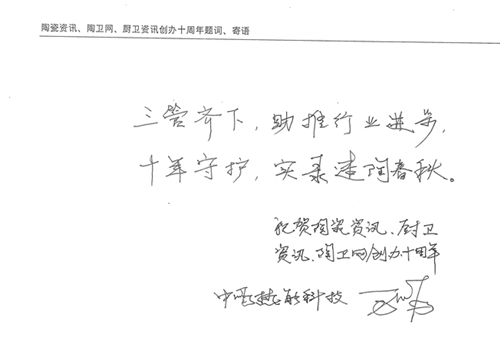 陶瓷资讯、陶卫网、厨卫资讯创办十周年题词、寄语
三管齐下，助推行业进步，
十年守护，实录建陶春秋。
祝贺陶瓷资讯、厨卫
资讯、陶卫网创办十周年
科技